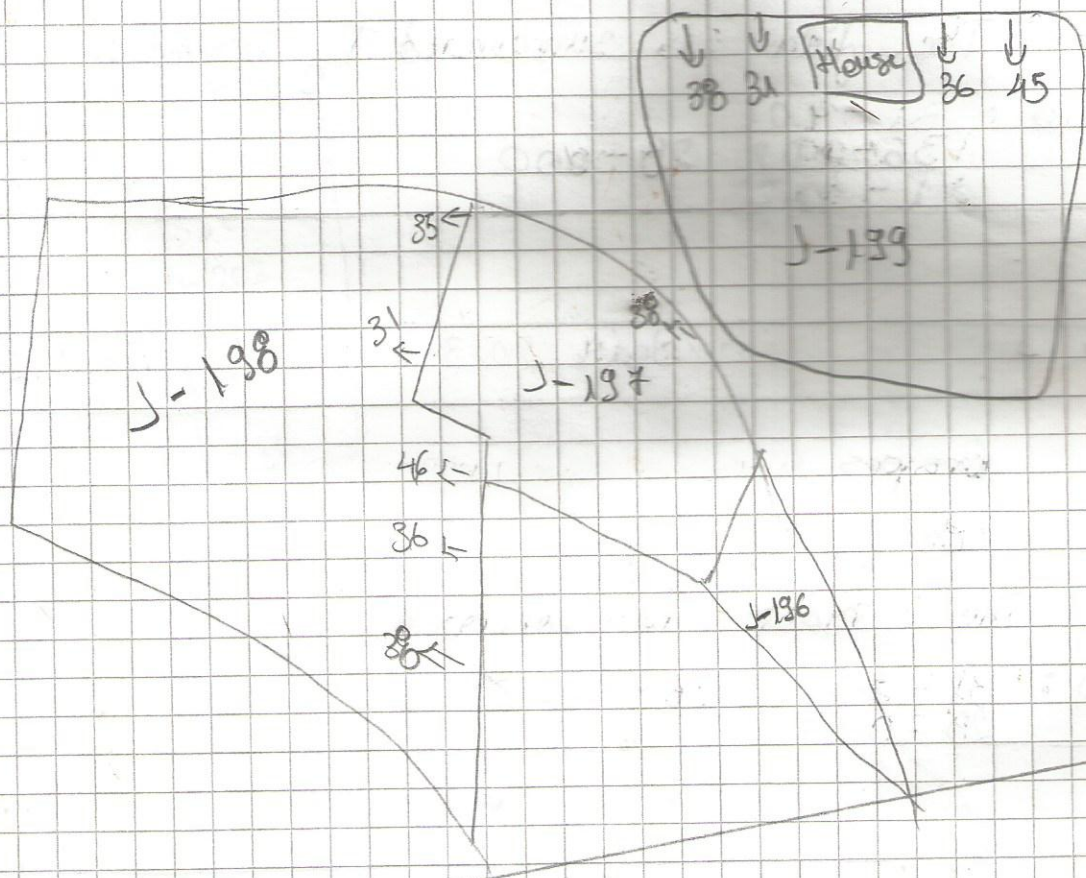 38 31 House 36 45
J-199
35
38
31
J-198
J-197
46
36
J-196